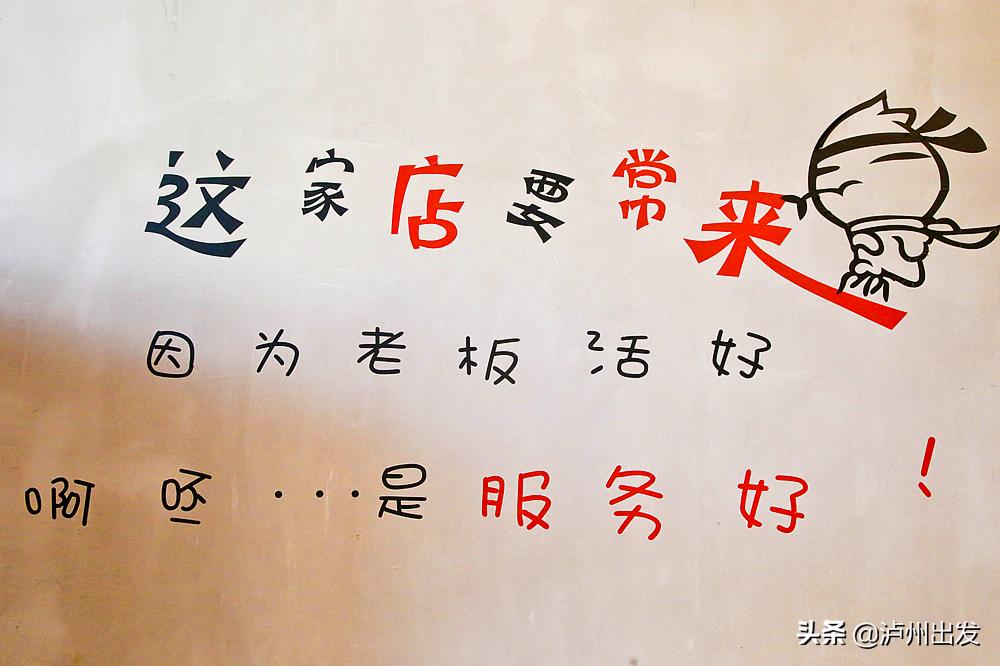 这家店要常来
因为老板活好
啊呸···是服务好!
头条@泸州出发